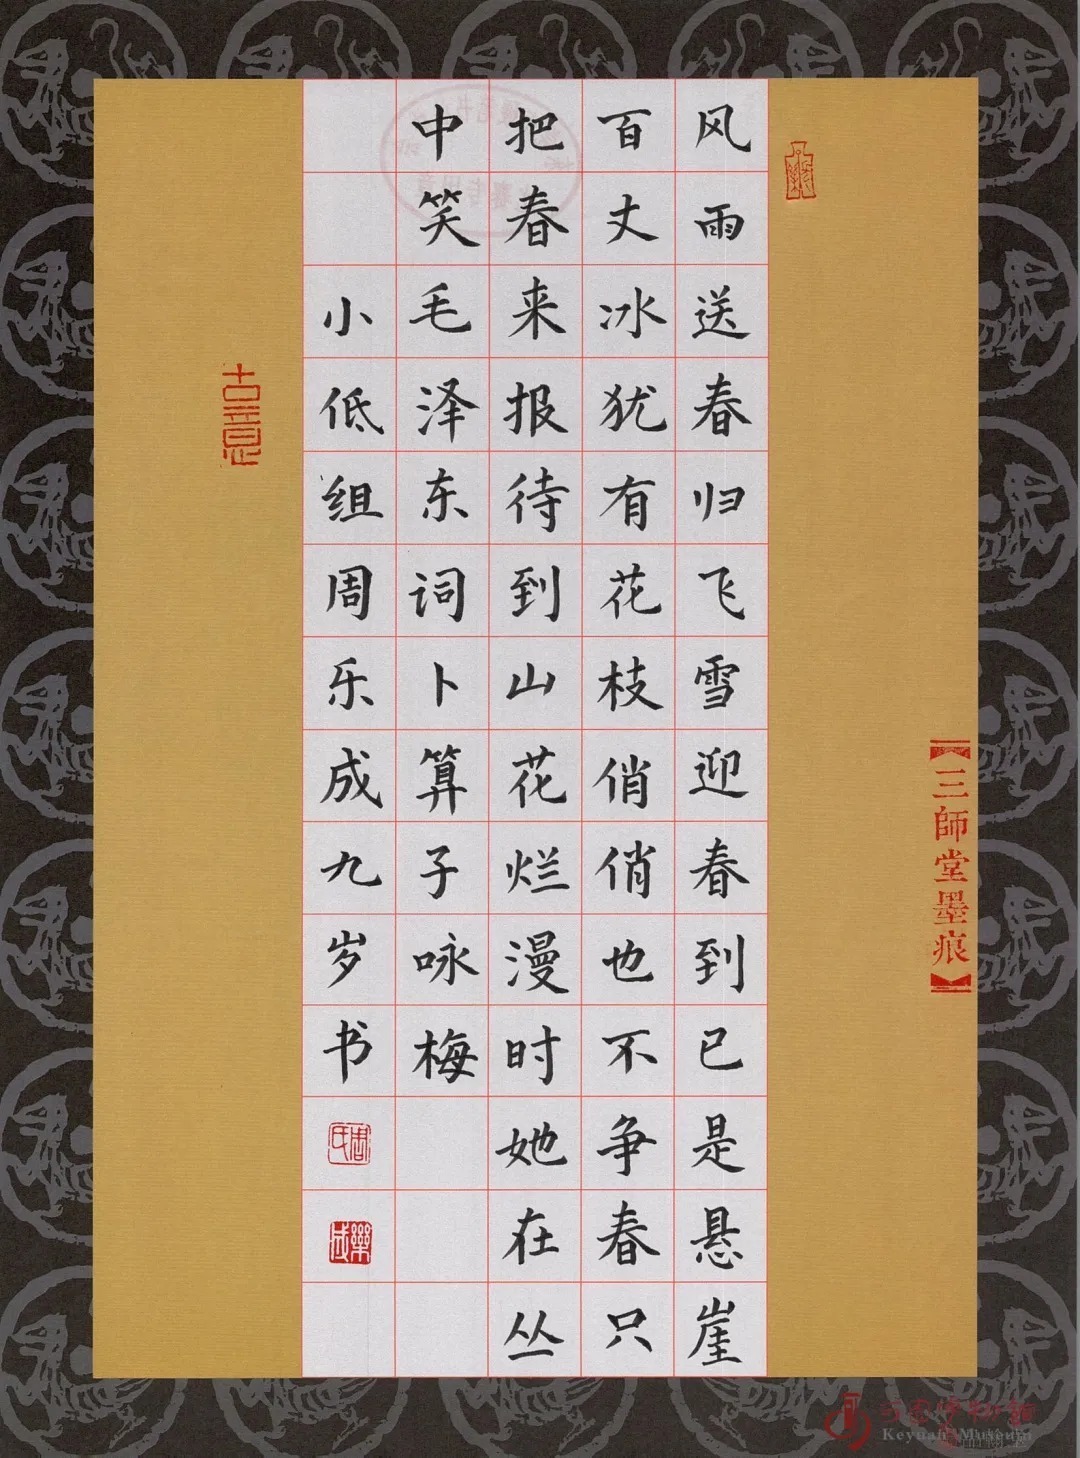 风雨送春归飞雪迎春到已是悬崖
百丈冰犹有花枝俏俏也不争春只
把春来报待到山花烂漫时她在丛
中笑毛泽东词卜算子咏梅
小低组周乐成九岁书
周氏
乐成
古意
【三師堂墨痕】
Keyuan Museum